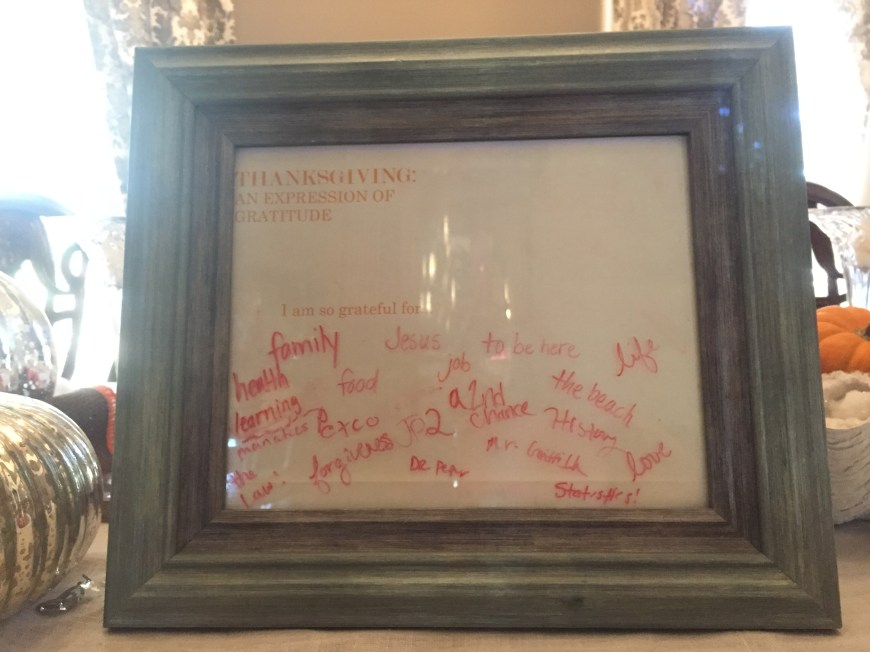 THANKSGIVING:
AN EXPRESSION OF
GRATITUDE
I am so grateful for
family Jesus to be here life
health food job the beach
learning a 2nd chance History
forgiveness JP2 love
the law!